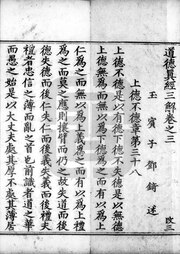 道德真經三解卷之三
改三
玉賓子鄧錡述
上德不德章第三十八
上德不德是以有德下德不失德是以無德
上德無為而無以為下德為之而有以為上
仁為之而無以為上義為之而有以為上禮
為之而莫之應則攘臂而仍之故失道而後
德失德而後仁失仁而後義失義而後禮夫
禮者忠信之薄而亂之首也前識者道之華
而愚之始是以大丈夫處其厚不處其薄居